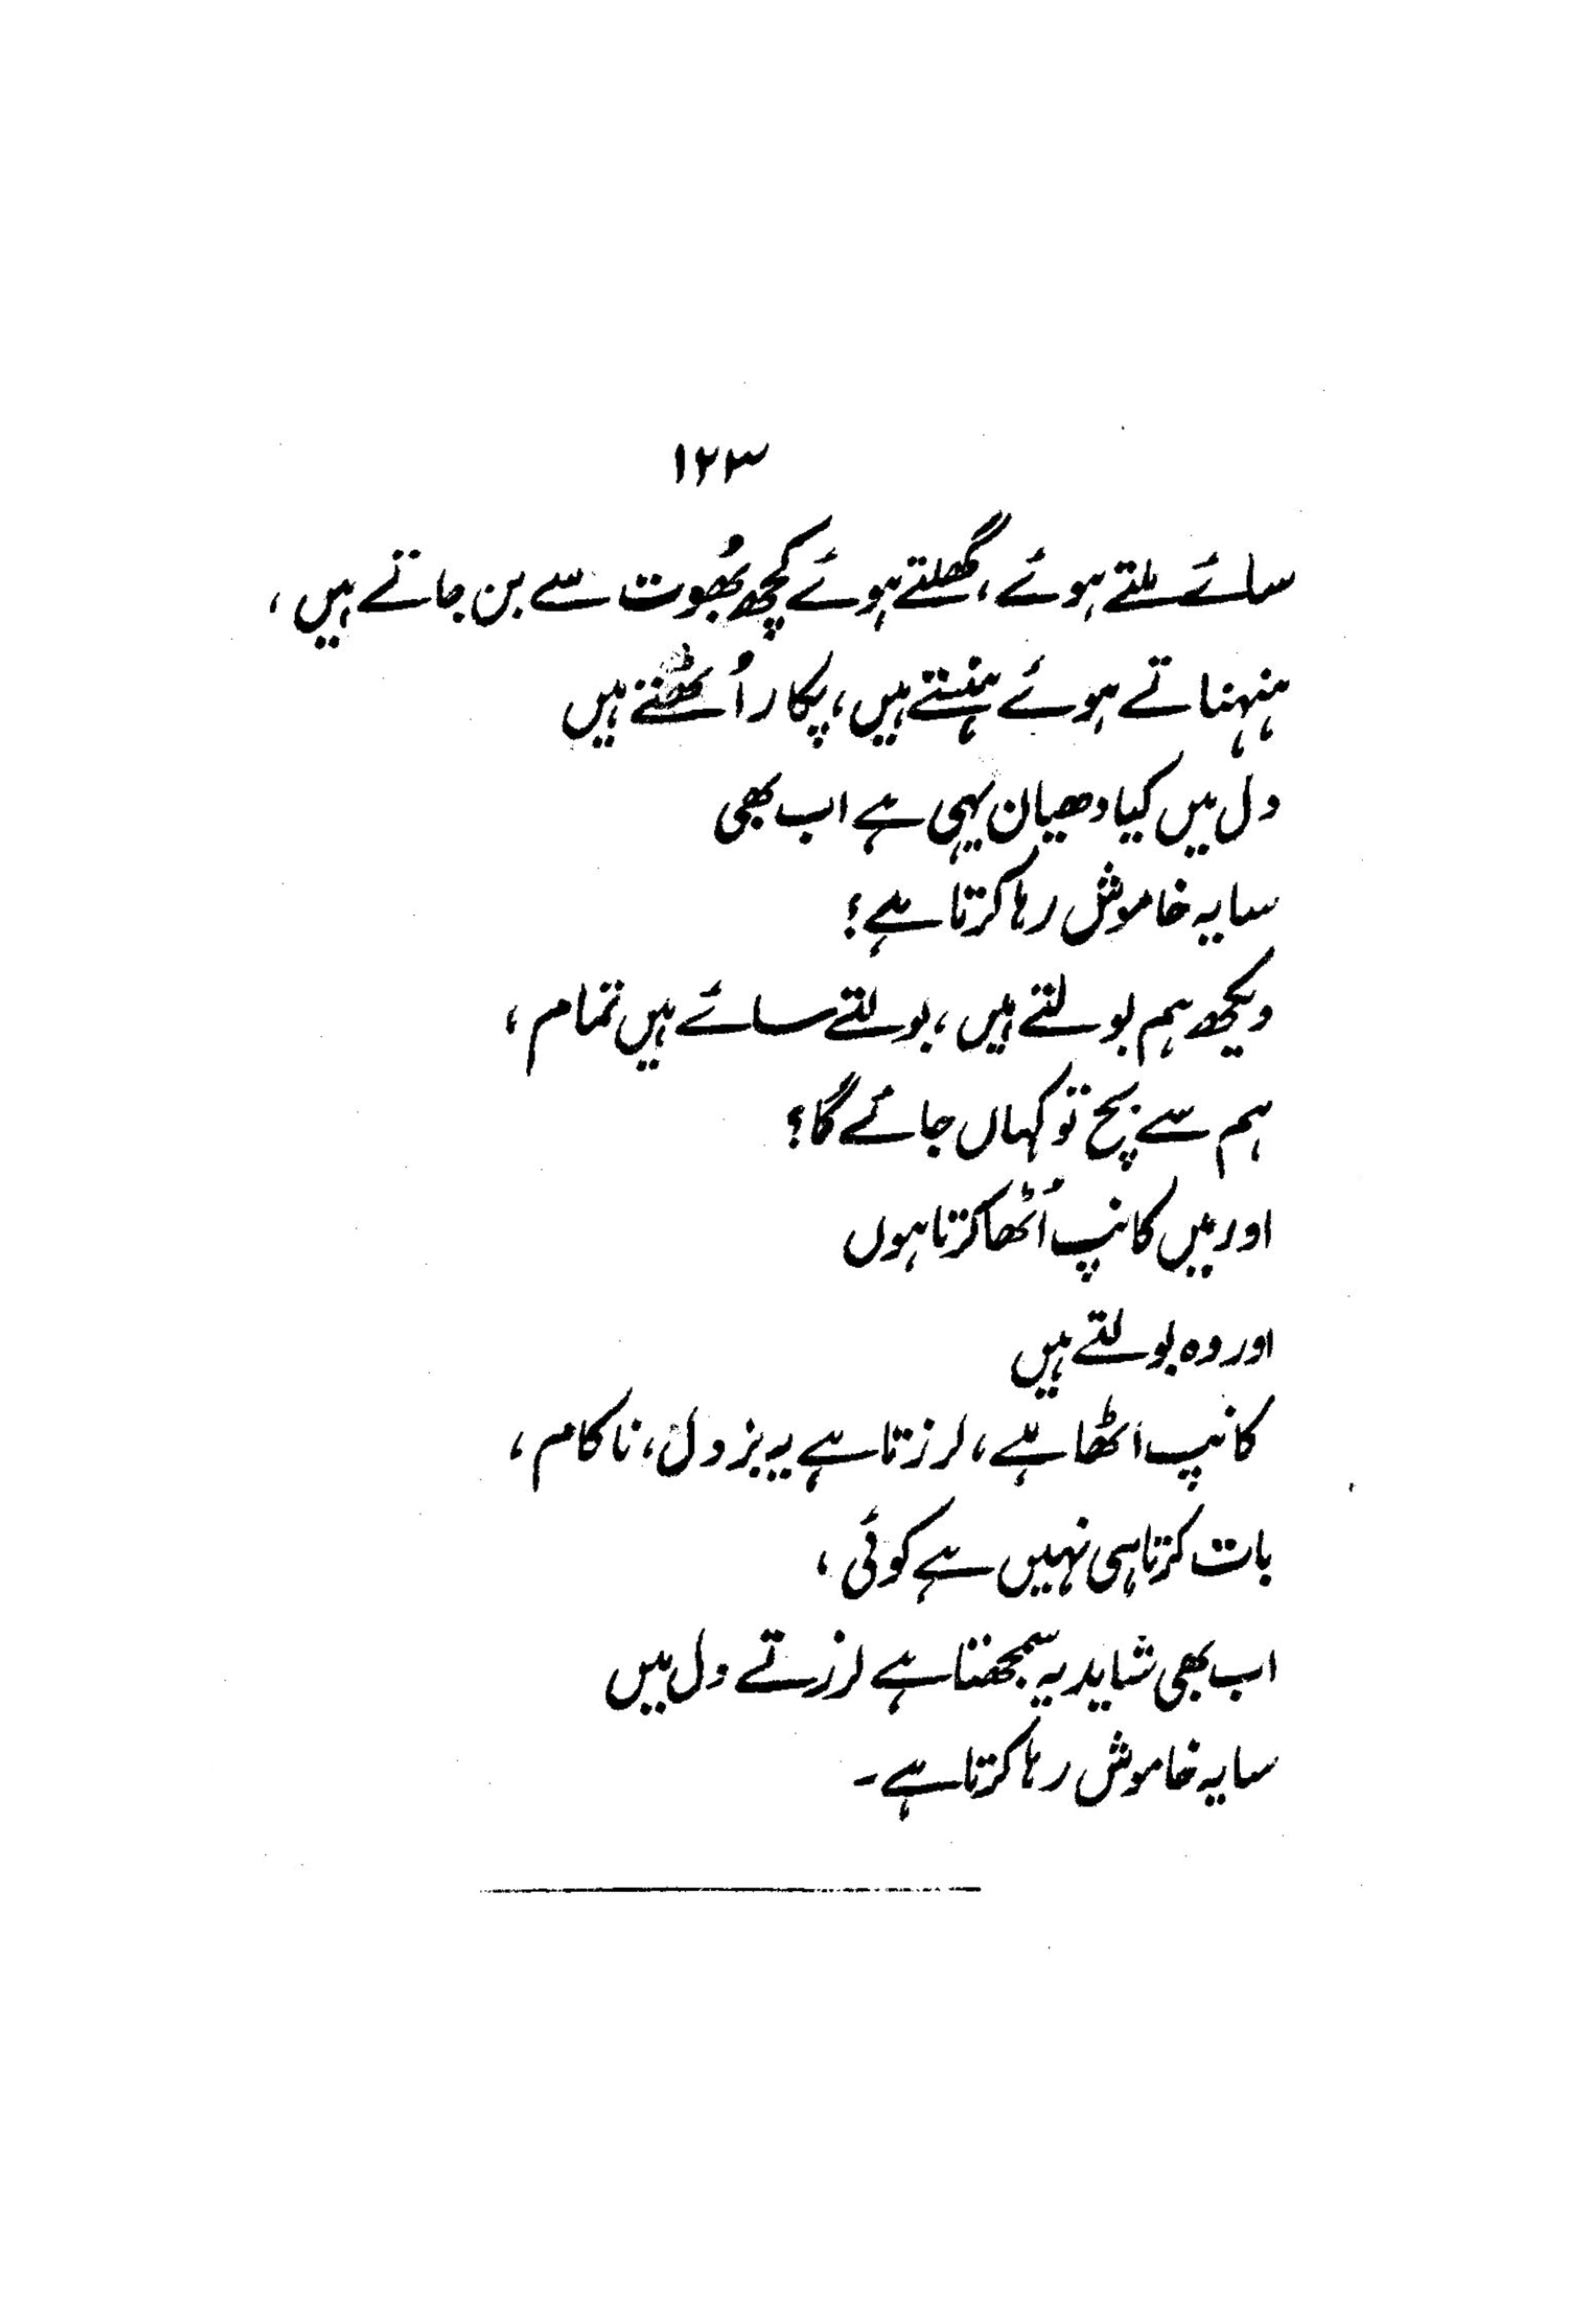 ۱۲۳
سائے ملتے ہوئے، گھلتے ہوئے کچھ بھُوت سے بن جاتے ہیں،
ہنہناتے ہوئے ہنستے ہیں، پکار اُٹھتے ہیں
دل میں کیا دھیان یہی ہے اب بھی
سایہ خاموش رہا کرتا ہے؟
دیکھ ہم بولتے ہیں، بولتے سائے ہیں تمام،
ہم سے بچ تو کہاں جائے گا؟
اور میں کانپ اُٹھا کرتا ہوں
اور وہ بولتے ہیں
کانپ اٹھا ہے، لرزتا ہے یہ بزدل، ناکام،
بات کرتا ہی نہیں ہے کوئی،
اب بھی شاید یہ سمجھتا ہے لرزتے دل میں
سایہ خاموش رہا کرتا ہے۔